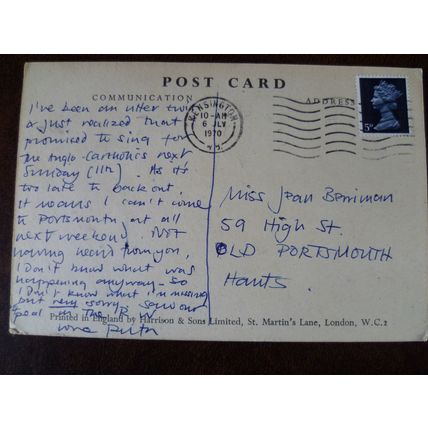 POST CARD
COMMUNICATION
ADDRESS
KENSINGTON
10-AM
6 JLY
1970
5D
I've been an utter twit
& just realized that
promised to sing for
the Anglo Catholics next
Sunday (11th). As it's
too late to back out,
it means I can't come
to Portsmouth at all
next weekend. Not
having heard from you,
I don't know what was
happening anyway - so
I don't know what I'm missing
but very sorry.
in the
love
Miss Jean Berriman
59 High St.
OLD PORTSMOUTH
Hants.
Printed in England by Harrison & Sons Limited, St. Martin's Lane, London, W.C.2